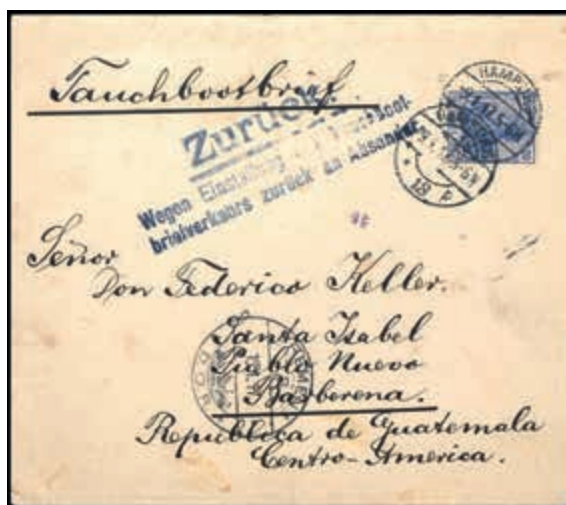 Tauchbootbrief.
Zurück
Wegen Einstellung des Tauchboot-
briefverkehrs zurück an Absender
HAMBURG
18 P
Señor
Don Federico Keller.
Santa Isabel
Pueblo Nuevo
Barberena.
Republica de Guatemala
Centro-America.